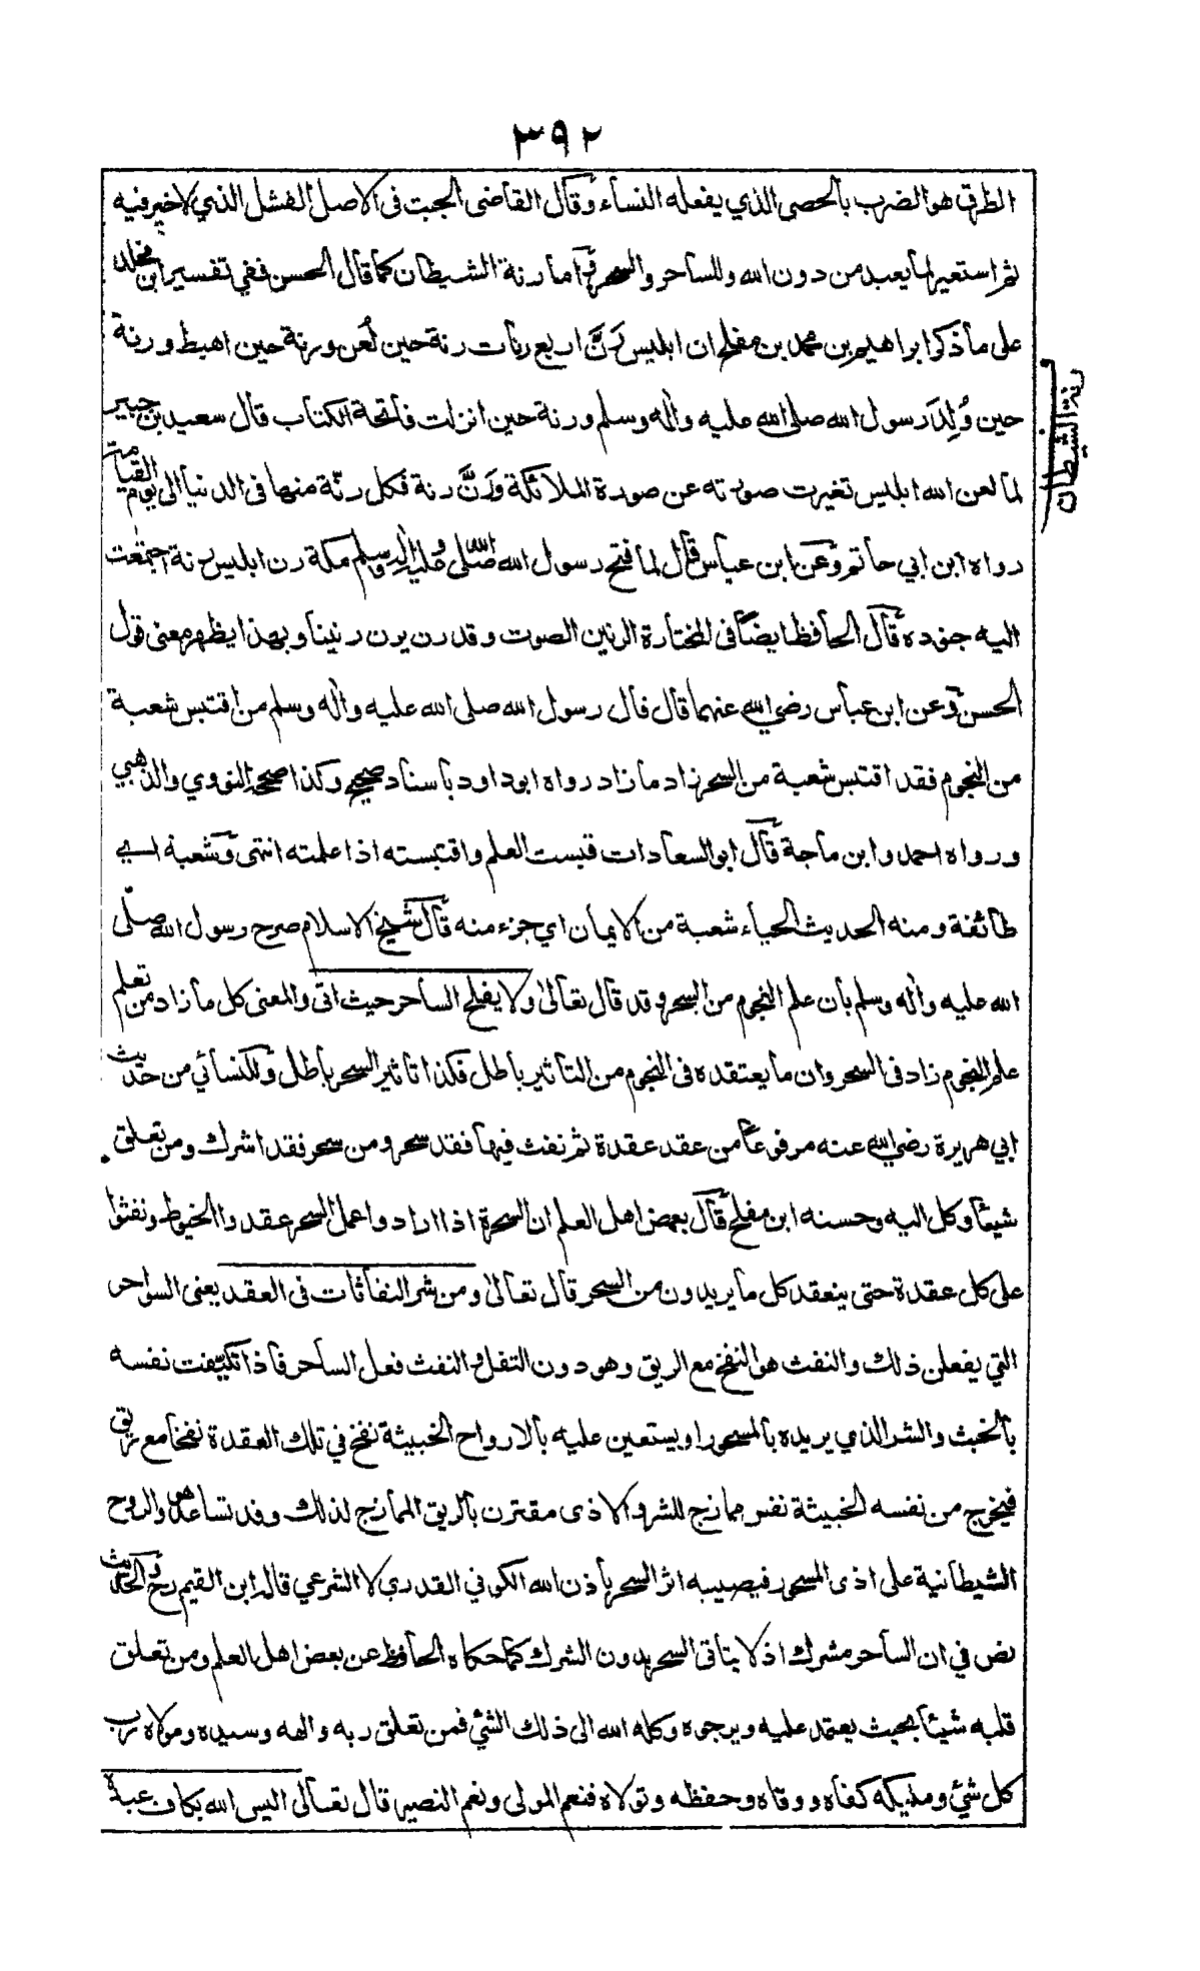 ٣٩٢
الطرق هو الضرب بالحصى الذي يفعله النساء وقال القاضى الجبت فى الاصل الفشل الذي لا خير فيه
ثم استعير لما يعبد من دون الله وللساحر والسحر واما رنة الشيطان كما قال الحسن ففي تفسير ابن مخلد
على ما ذكر ابراهيم بن محمد بن مفلح ان ابليس رَنَّ اربع رنات رنة حين لُعن ورنة حين اهبط ورنة
حين وُلِدَ رسول الله صلى الله عليه واٰله وسلم ورنة حين انزلت فاتحة الكتاب قال سعيد بن جبير
لما لعن الله ابليس تغيرت صورته عن صورة الملائكة وَرَنَّ رنة فكل رنّة منها فى الدنيا الى يوم القيامة
رنة الشيطان
رواه ابن ابي حاتم وعن ابن عباس قال لما فتح رسول الله صلى الله عليه واٰله وسلم مكة رن ابليس رنة اجتمعت
اليه جنوده قال الحافظ ايضًا فى المختارة الرنين الصوت وقد رن يرن رنينا وبهذا يظهر معنى قول
الحسن وعن ابن عباس رضي الله عنهما قال قال رسول الله صلى الله عليه واٰله وسلم من اقتبس شعبة
من النجوم فقد اقتبس شعبة من السحر زاد ما زاد رواه ابو داود باسناد صحيح وكذا صححه النووي والذهبي
ورواه احمد وابن ماجة قال ابو السعادات قبست العلم واقتبسته اذا علمته انتهى وشعبة اي
طائفة ومنه الحديث الحياء شعبة من الايمان اي جزء منه قال شيخ الاسلام صرح رسول الله صلّى
الله عليه واٰله وسلم بان علم النجوم من السحر وقد قال تعالىٰ ولا يفلح الساحر حيث اتى والمعنى كل ما زاد من تعلم
علم النجوم زاد فى السحر وان ما يعتقده فى النجوم من التاثير باطل فكذا تاثير السحر باطل وللنسائي من حديث
ابي هريرة رضي الله عنه مرفوعًا من عقد عقدة ثم نفث فيها فقد سحر ومن سحر فقد اشرك ومن تعلق
شيئا وكل اليه وحسنه ابن مفلح قال بعض اهل العلم ان السحرة اذا ارادوا عمل السحر عقدوا الخيوط ونفثوا
على كل عقدة حتى ينعقد كل ما يريدون من السحر قال تعالىٰ ومن شر النفاثات فى العقد يعنى السواحر
التي يفعلن ذلك والنفث هو النفخ مع الريق وهو دون التفل والنفث فعل الساحر فاذا تكيّفت نفسه
بالخبث والشر الذي يريده بالمسحور ويستعين عليه بالارواح الخبيثة نفخ في تلك العقدة نفخا مع ريق
فيخرج من نفسه الخبيثة نفس ممازج للشر والاذى مقترن بالريق الممازج لذلك وقد تساعد هو والروح
الشيطانية على اذى المسحور فيصيبه اثر السحر باذن الله الكوني القدري لا الشرعي قاله ابن القيم رح والحديث
نص في ان الساحر مشرك اذ لا يتاتى السحر بدون الشرك كما حكاه الحافظ عن بعض اهل العلم ومن تعلق
قلبه شيئا بحيث يعتمد عليه ويرجوه وكله الله الى ذلك الشئ فمن تعلق ربه والهه وسيده ومولاه رب
كل شئ ومليكه كفاه ووقاه وحفظه وتولاه فنعم المولى ونعم النصير قال تعالى اليس الله بكاف عبده